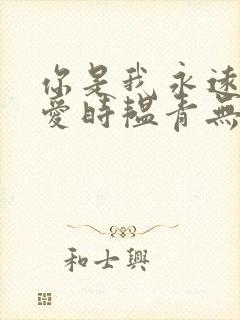 你是我永遠
愛時韞青無
和士興